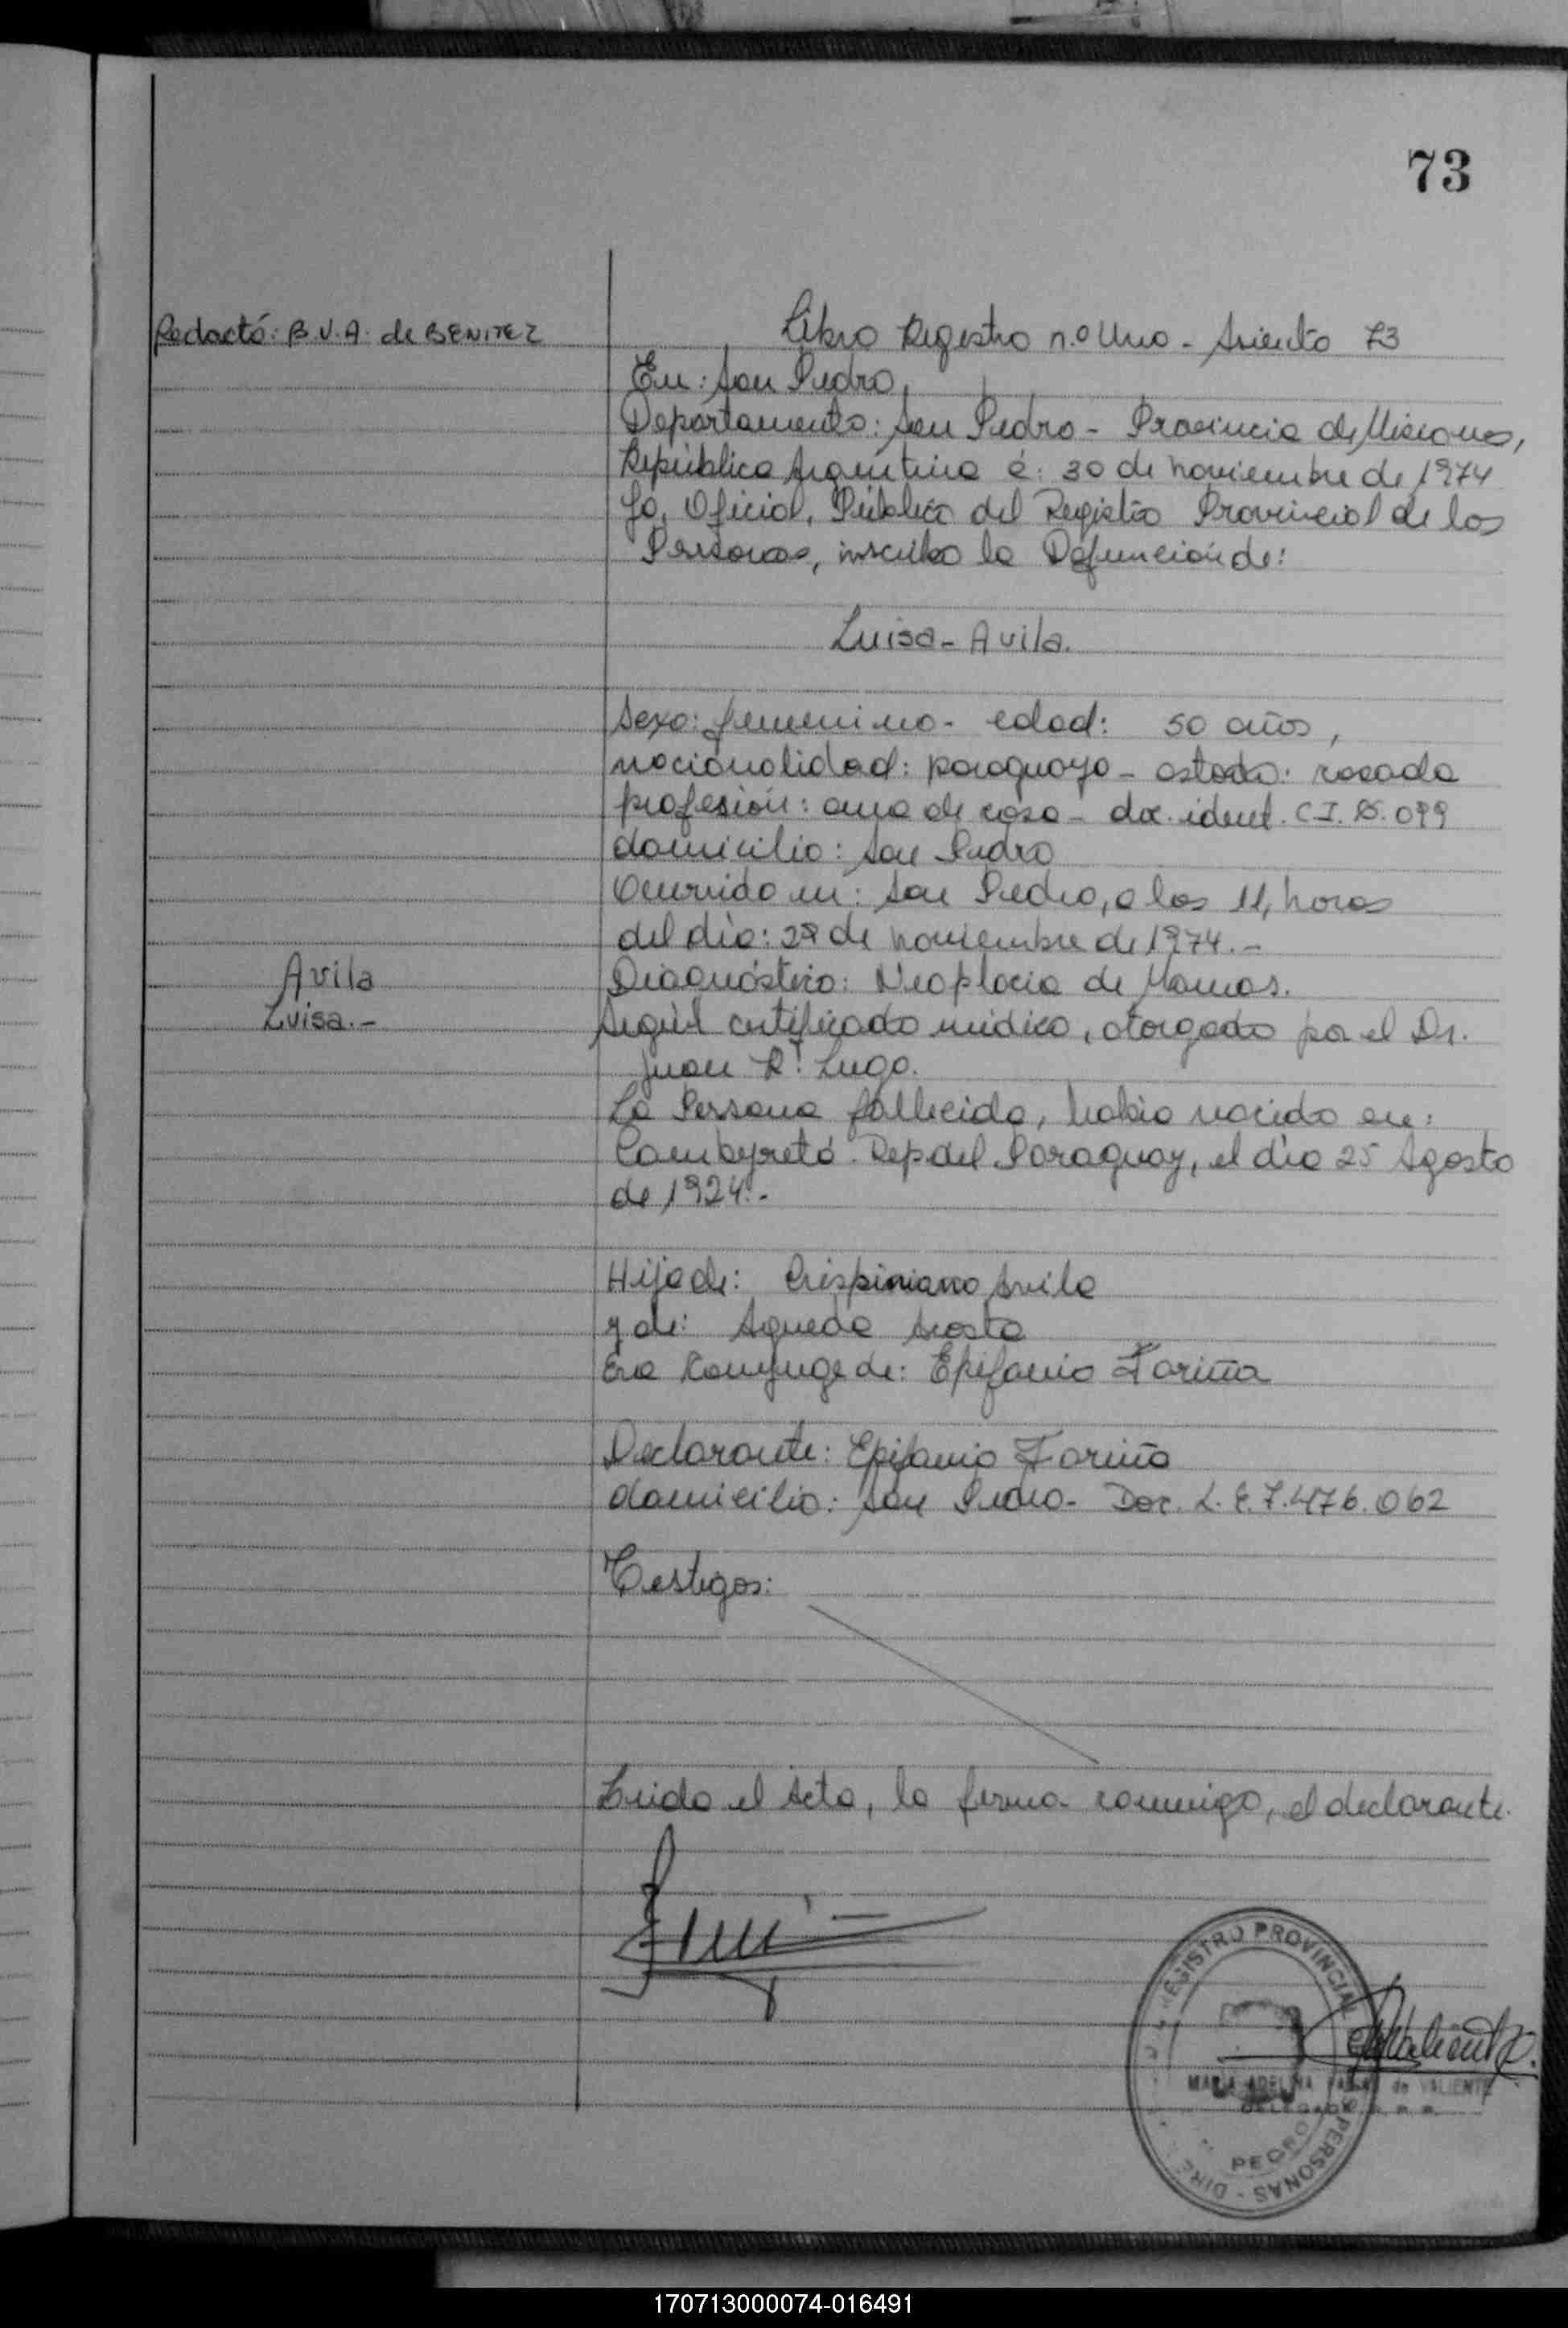 73
Redactó: B.V.A. de BENITEZ
Libro Registro n.o Uno - Asiento 73
En: San Pedro,
Departamento: San Pedro - Provincia de Misiones,
República Argentina á: 30 de noviembre de 1974
Yo, Oficial, Público del Registro Provincial de las
Personas, inscribo la Defunción de:
Luisa - Avila.
Sexo: femenino - edad: 50 años,
nacionalidad: paraguaya - estado: casada
profesión: ama de casa - doc. ident. C.I. 099
domicilio: San Pedro
Ocurrido en: San Pedro, a las 11, horas
del día: de noviembre de 1974.-
Avila
Luisa.-
Diagnóstico: Neoplacia de Mamas.
Según certificado médico, otorgado por el Dr.
Juan R. Lugo.
La Persona fallecida, había nacido en:
Rep del Paraguay, el día 25 Agosto
de 1924.-
Hija de: Crispiniano Avila
y de: Agueda Acosta
Era Conyuge de: Epifanio Fariña
Declarante: Epifanio Fariña
domicilio: San Pedro - Doc. L.E. 7.476.062
Testigos:
Leida el Acta, la firma conmigo, el declarante.
REGISTRO PROVINCIAL
PERSONAS - DIRE
PEDRO
MARIA ADELINA de VALIENTE
DELEGADA R. P. P.
170713000074-016491